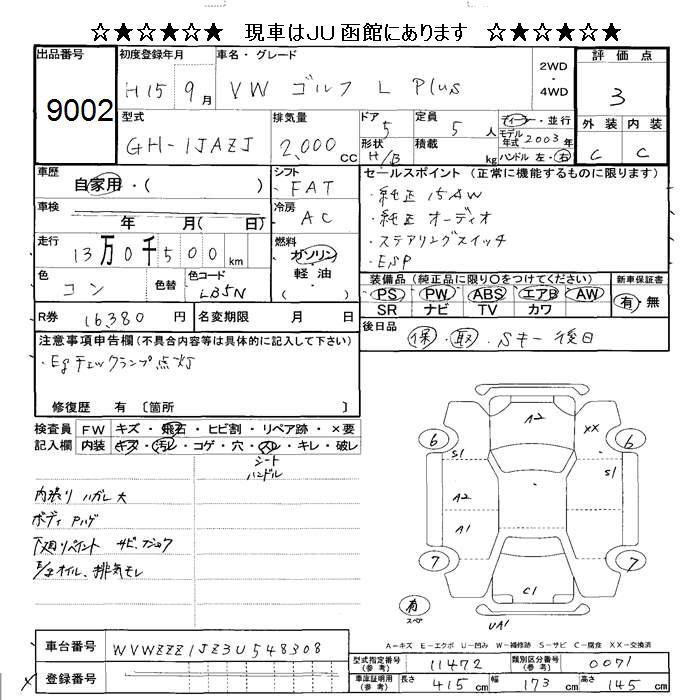 ☆★☆★☆★ 現車はJU函館にあります ☆★☆★☆★
出品番号 初度登録年月 車名・グレード 2WD・4WD 評価点
9002 H15 9月 VW ゴルフ L Plus 3
型式 排気量 ドア 定員 ディーラー・並行 外装 内装
GH-1JAZJ 2,000 cc 5 5人 モデル年式 2003年 C C
形状 H/B 積載 kg ハンドル 左・右
車歴 自家用・( ) シフト FAT セールスポイント (正常に機能するものに限ります)
車検 年 月( 日) 冷房 AC ・純正 15AW
・純正 オーディオ
走行 13万0千500km 燃料 ガソリン 軽油・( ) ・ステアリングスイッチ
・ESP
色 コン 色替 色コード LB5N 装備品(純正品に限り〇をつけてください) 新車保証書
PS PW ABS エアB AW 有・無
SR ナビ TV カワ
R券 16,380円 名変期限 月 日 後日品 保・取・Sキー 後日
注意事項申告欄(不具合内容等は具体的に記入して下さい)
・Egチェックランプ点灯
修復歴 有 〔箇所 〕
検査員 FW キズ・飛石・ヒビ割・リペア跡・×要
記入欄 内装 キズ・汚レ・コゲ・穴・スレ・キレ・破レ
シート
ハンドル
内張り ハガレ 大
ボディ Pハゲ
下廻リペイント サビ、フショク
オイル、排気モレ
A2 XX
6 6
S1 S1
A2
A1
7 7
C1
有
スペア
UA1
A-キズ E-エクボ U-凹み W-補修跡 S-サビ C-腐食 XX-交換済
車台番号 WVWZZZ1JZ3U548308 型式指定番号(参考) 11472 類別区分番号(参考) 0071
登録番号 車庫証明用(参考) 長さ 415cm 幅 173cm 高さ 145cm